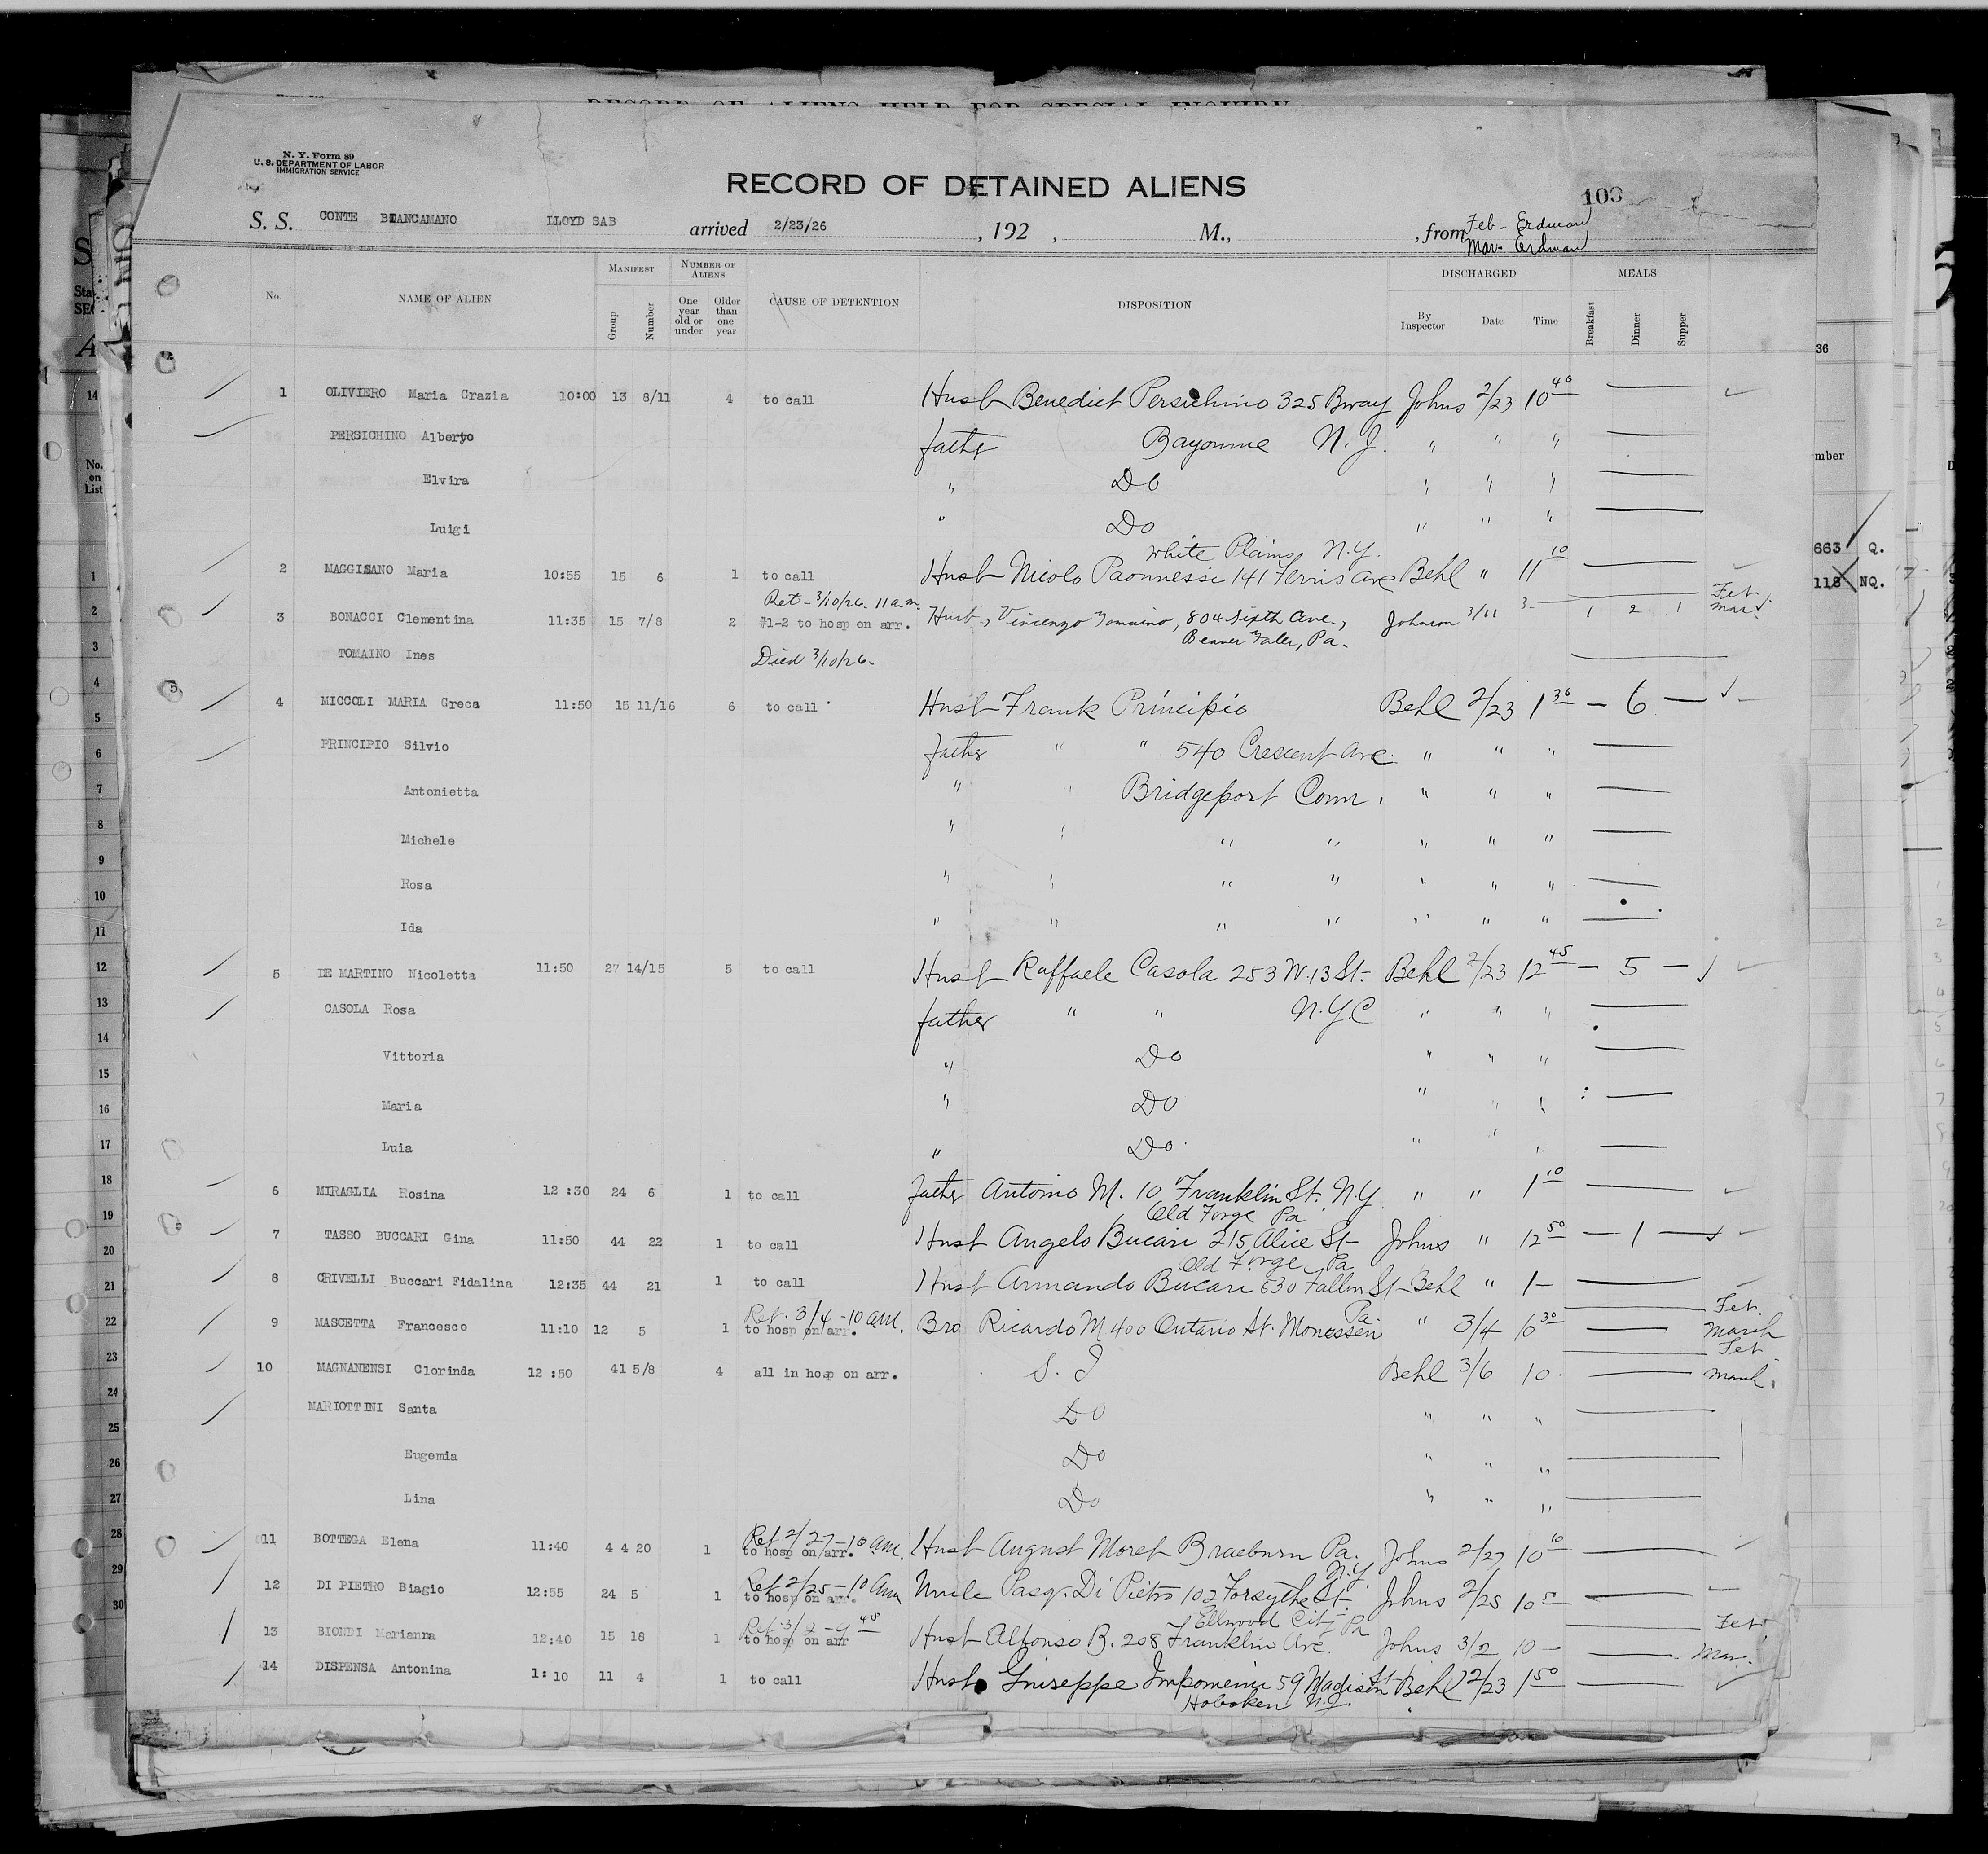 RECORD OF ALIENS HELD FOR SPECIAL INQUIRY
N. Y. Form 89
U. S. DEPARTMENT OF LABOR
IMMIGRATION SERVICE
RECORD OF DETAINED ALIENS
103
S. S. CONTE BIANCAMANO LLOYD SAB arrived 2/23/26, 192 , M., , from Feb - Erdman
Mar - Erdman
No. NAME OF ALIEN MANIFEST Group Number NUMBER OF ALIENS One year old or under Older than one year CAUSE OF DETENTION DISPOSITION DISCHARGED By Inspector Date Time MEALS Breakfast Dinner Supper
1 OLIVIERO Maria Grazia 10:00 13 8/11 4 to call Husb Benedict Persichino 325 Bway Johns 2/23 10 40
PERSICHINO Alberto father Bayonne N.J. " " "
Elvira " Do " " "
Luigi " Do " " "
White Plains, N.Y.
2 MAGGISANO Maria 10:55 15 6 1 to call Husb Nicolo Paonnessi 141 Ferris Ave Behl " 11 10
Ret - 3/10/26. 11 a.m. Feb
3 BONACCI Clementina 11:35 15 7/8 2 #1-2 to hosp on arr. Husb., Vincenzo Tomaino, 804 Sixth Ave., Johnson 3/11 3- 1 2 1 Mar
Beaver Falls, Pa.
TOMAINO Ines Died 3/10/26.
4 MICCOLI MARIA Greca 11:50 15 11/16 6 to call Husb Frank Principio Behl 2/23 1 30 — 6 —
PRINCIPIO Silvio father " " 540 Crescent Ave. " " "
Antonietta " " Bridgeport Conn. " " "
Michele " " " " " " "
Rosa " " " " " " "
Ida " " " " " " "
5 DE MARTINO Nicoletta 11:50 27 14/15 5 to call Husb Raffaele Casola 253 W. 13 St- Behl 2/23 12 45 — 5 —
CASOLA Rosa father " " N.Y.C " " "
Vittoria " Do " " "
Maria " Do " " "
Luia " Do " " "
6 MIRAGLIA Rosina 12:30 24 6 1 to call father Antonio M. 10 Franklin St. N.Y. " " 1 10
Old Forge Pa
7 TASSO BUCCARI Gina 11:50 44 22 1 to call Husb Angelo Bucari 215 Alice St- Johns " 12 50 — 1 —
Old Forge Pa
8 CRIVELLI Buccari Fidalina 12:35 44 21 1 to call Husb Armando Bucari 530 Fallon St- Behl " 1 -
Ret. 3/4 - 10 a.m. Pa. Feb.
9 MASCETTA Francesco 11:10 12 5 1 to hosp on arr. Bro Ricardo M 400 Ontario St. Monessen " 3/4 10 30 March
Feb
10 MAGNANENSI Clorinda 12:50 41 5/8 4 all in hosp on arr. S. I Behl 3/6 10 March
MARIOTTINI Santa Do " " "
Eugemia Do " " "
Lina Do " " "
Ret 2/27 - 10 am.
11 BOTTEGA Elena 11:40 4 4 20 1 to hosp on arr. Husb August Moret Braeburn Pa. Johns 2/27 10 10
Ret 2/25 - 10 am N.Y.
12 DI PIETRO Biagio 12:55 24 5 1 to hosp on arr. Uncle Pasq. Di Pietro 102 Forsythe St. Johns 2/25 10
Ret 3/2 - 9 45 Ellwood City Pa Feb
13 BIONDI Marianna 12:40 15 18 1 to hosp on arr Husb Alfonso B. 208 Franklin Ave. Johns 3/2 10 - Mar.
14 DISPENSA Antonina 1:10 11 4 1 to call Husb Giuseppe Impomeni 59 Madison St Behl 2/23 1 50
Hoboken N.J.